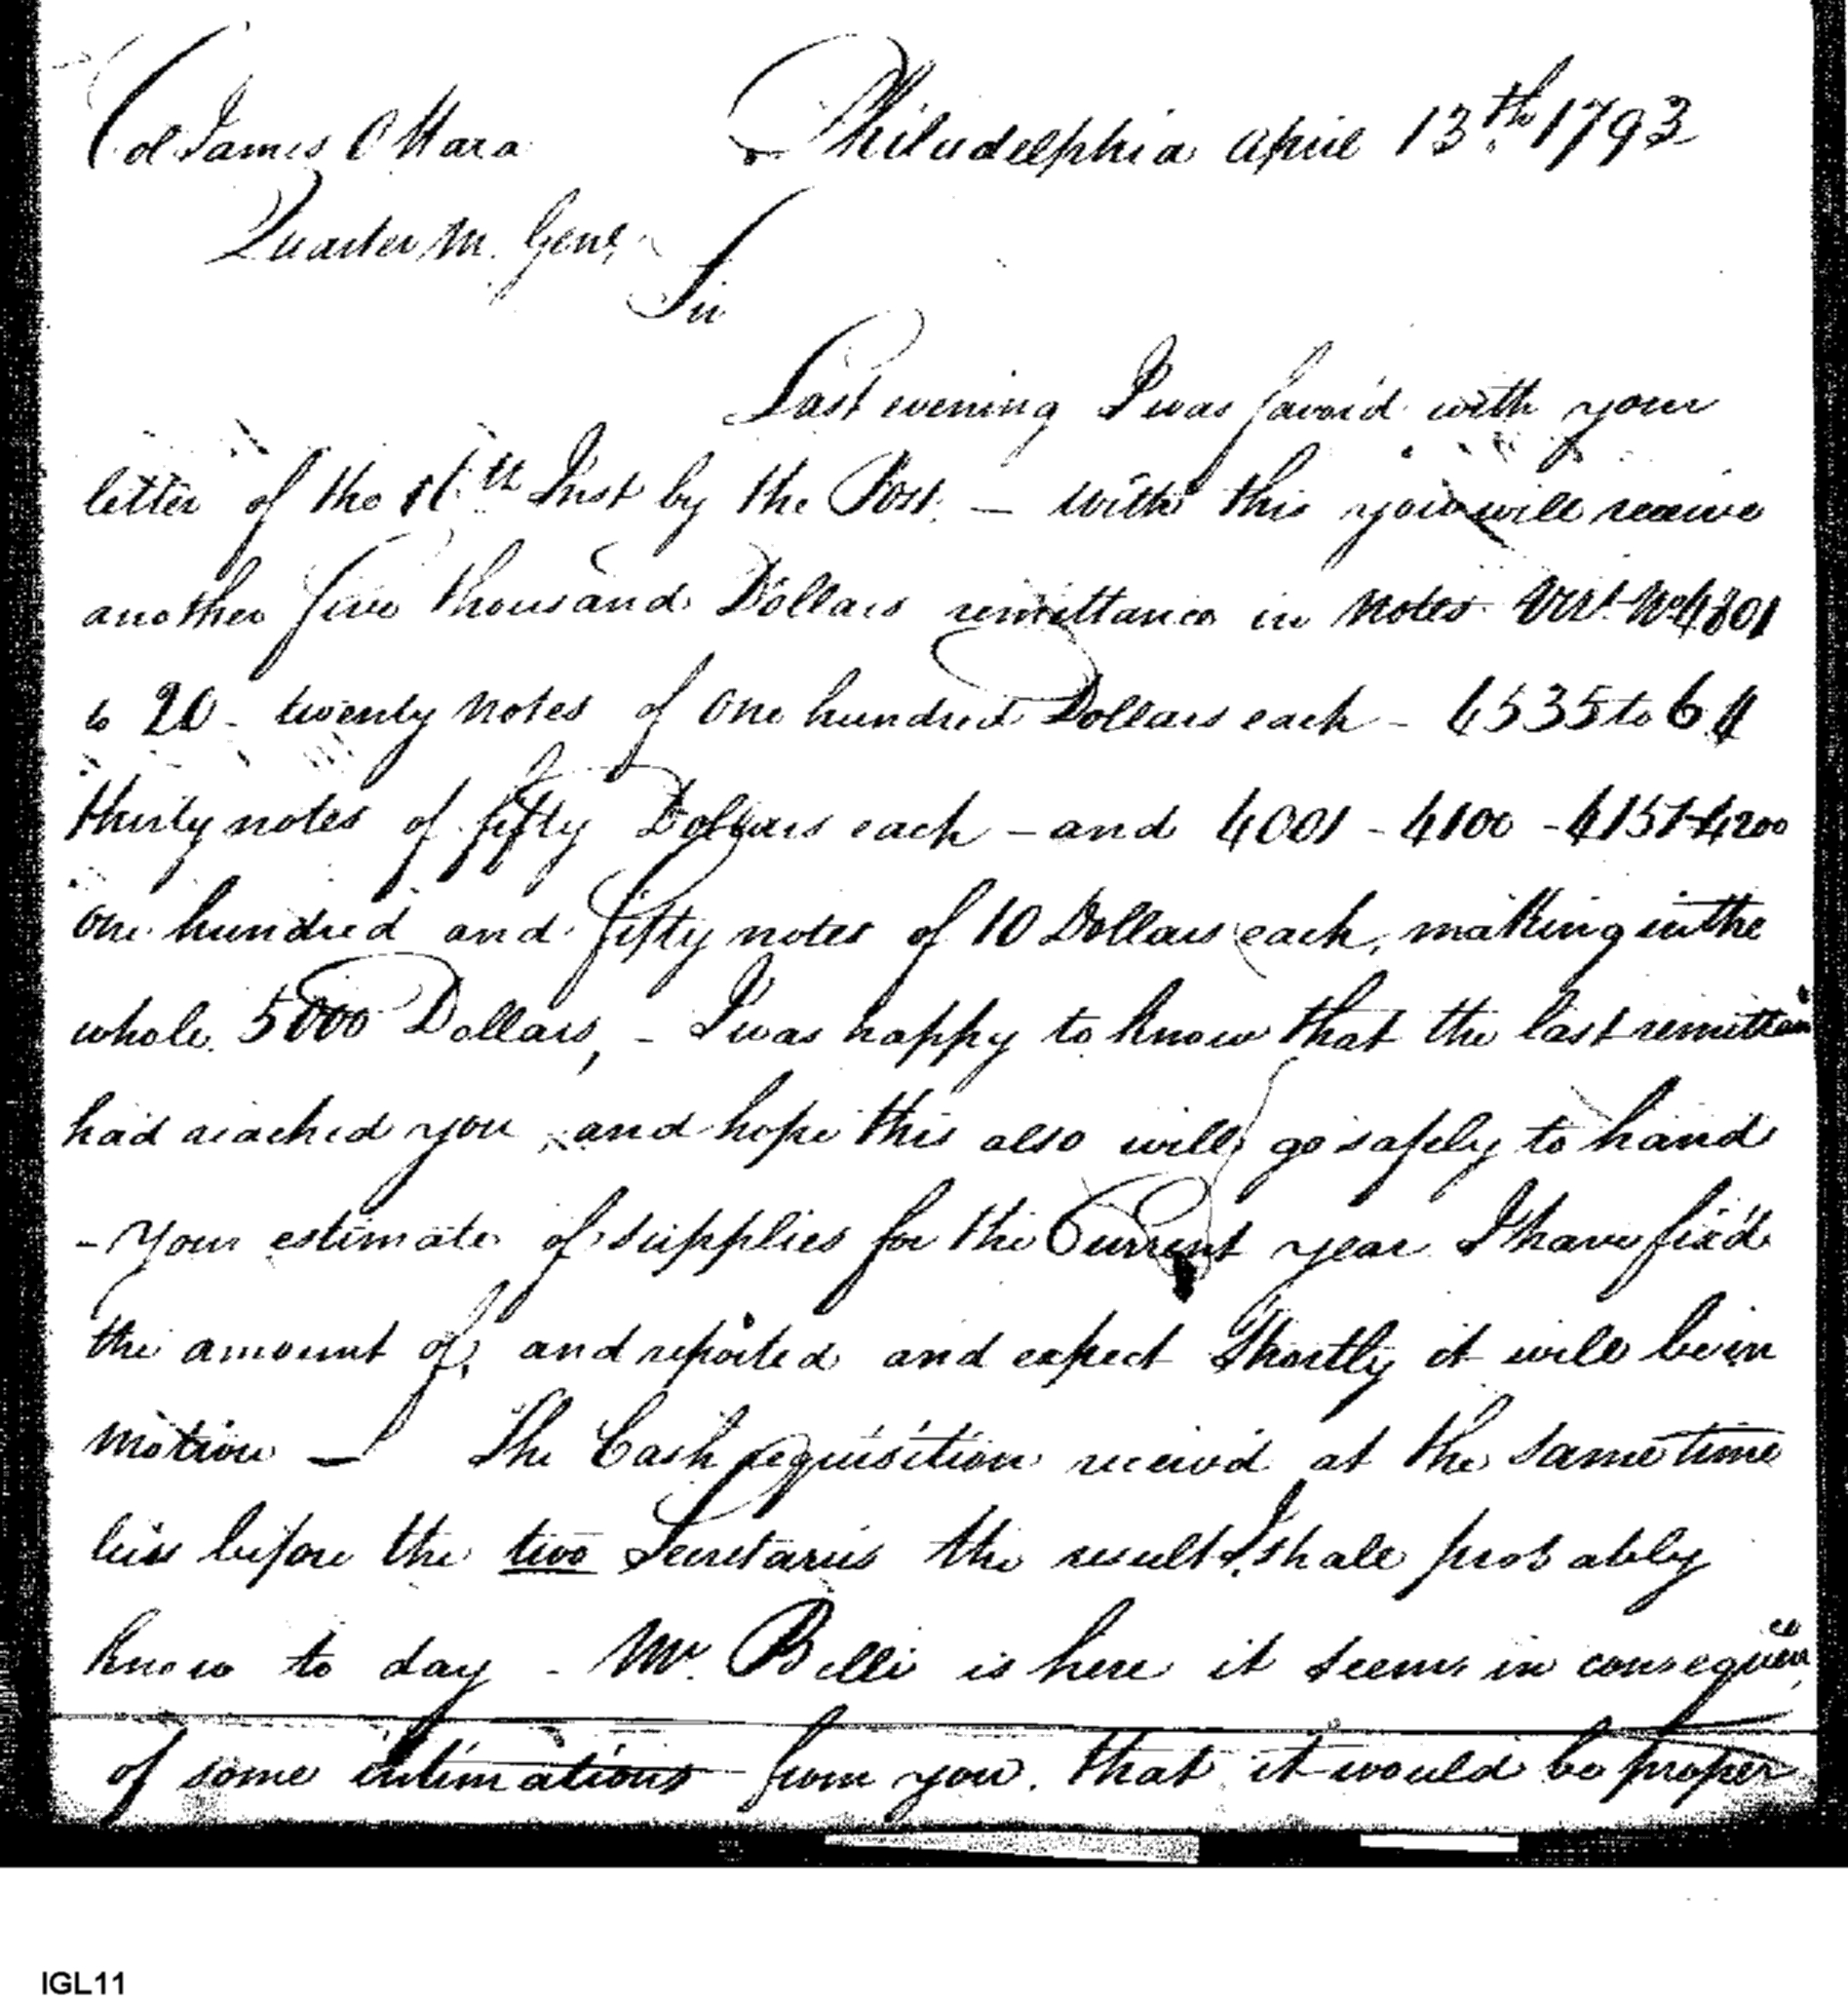 Col James O Hara Philadelphia April 13th. 1793
Quarter M. Genl.
Sir
Last evening I was favor'd with your
letter of the Inst by the Post. — With this you will receive
another five thousand Dollars remittance in Notes Vizt. No. 4801
to 20 - twenty notes of One hundred Dollars each - 6535 to 64
thirty notes of fifty Dollars each - and 4001 - 4100 - 4151-4200
One hundred and fifty notes of 10 Dollars each, making in the
whole 5000 Dollars, - I was happy to know that the last remittan
had reached you, and hope this also will go safely to hand
- Your estimate of supplies for the Current year I have fix'd
the amount of, and reported and expect Shortly it will be in
motion — The Cash requisition receiv'd at the same time
lies before the two Secretaries the result I shall probably
know to day - Mr. Belli is here it seems in consequence
of some intimations from you. that it would be proper
IGL11